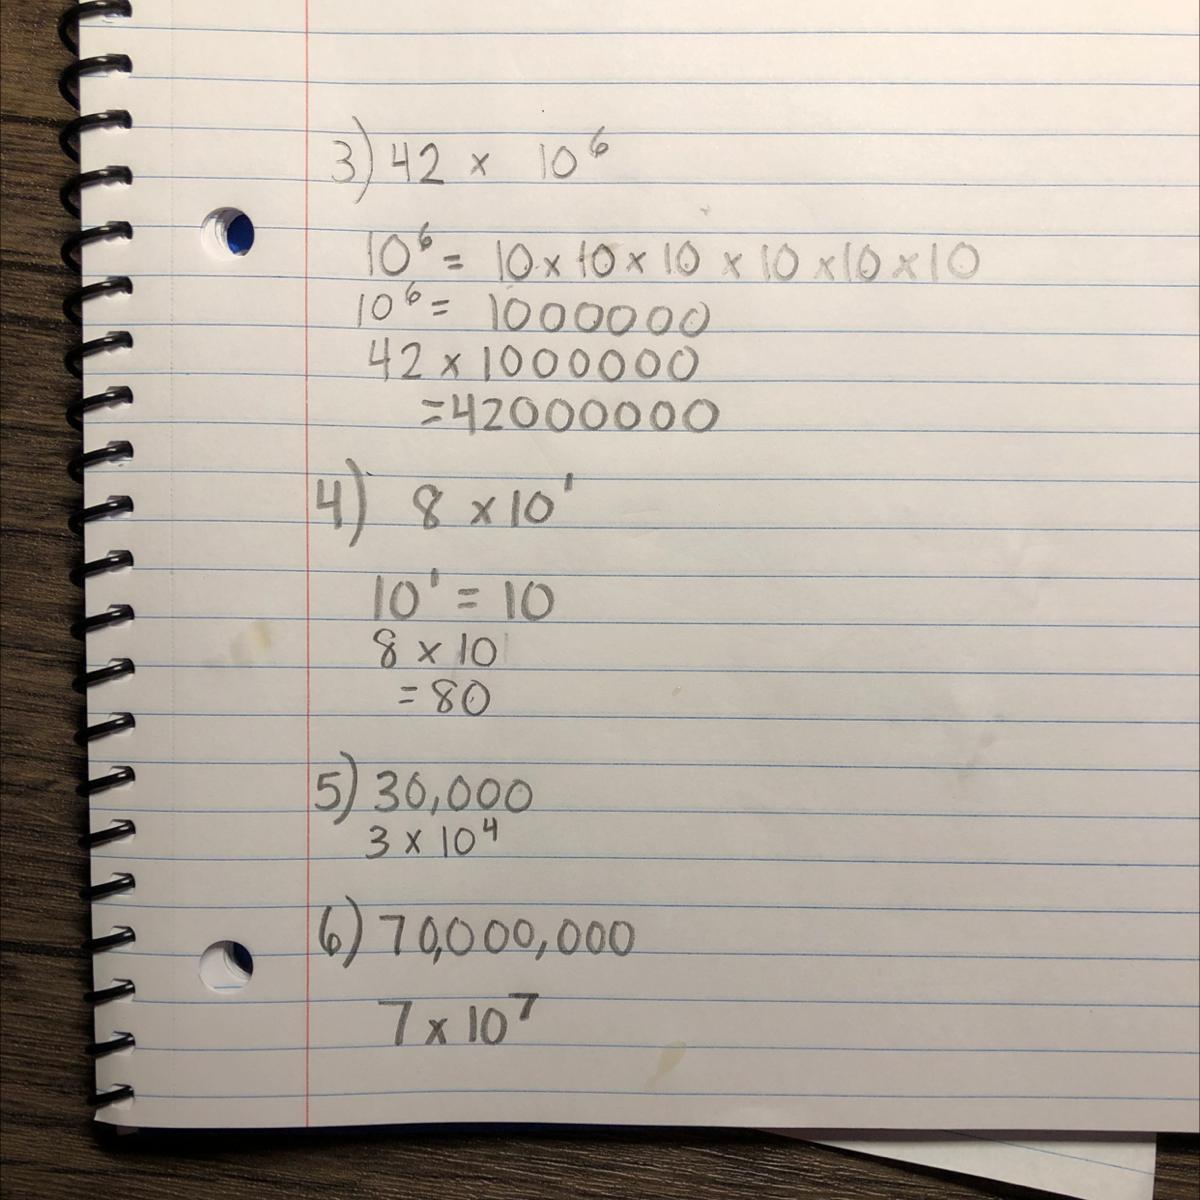 3) 42 × 10⁶
10⁶ = 10 × 10 × 10 × 10 × 10 × 10
10⁶ = 1000000
42 × 1000000
= 42000000
4) 8 × 10¹
10¹ = 10
8 × 10
= 80
5) 30,000
3 × 10⁴
6) 70,000,000
7 × 10⁷